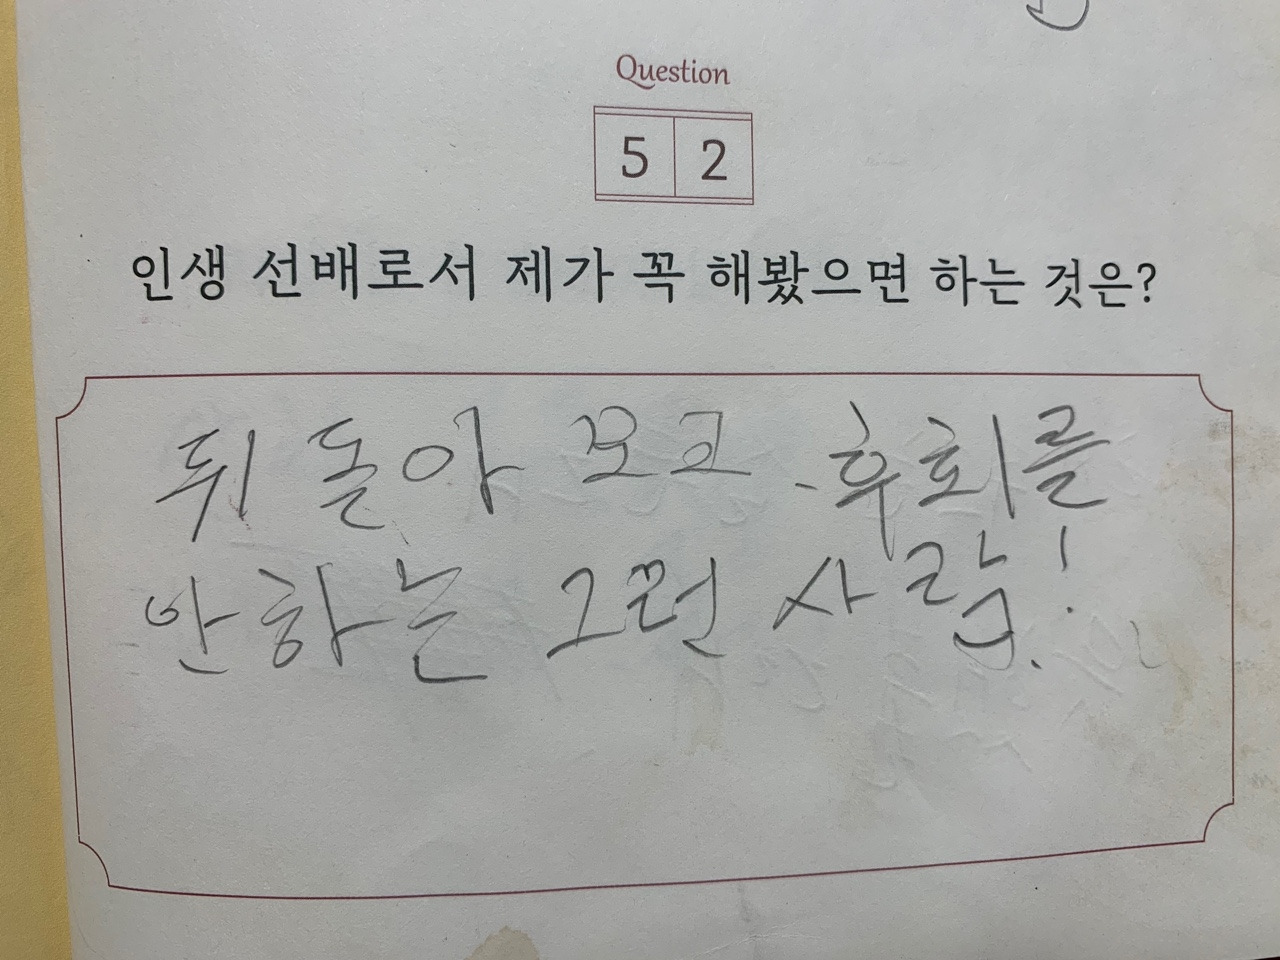 Question
5 2
인생 선배로서 제가 꼭 해봤으면 하는 것은?
뒤 돌아 보고 후회를
안 하는 그런 사람!